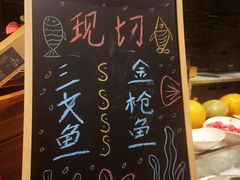 现切
三文鱼
SSSS
金枪鱼